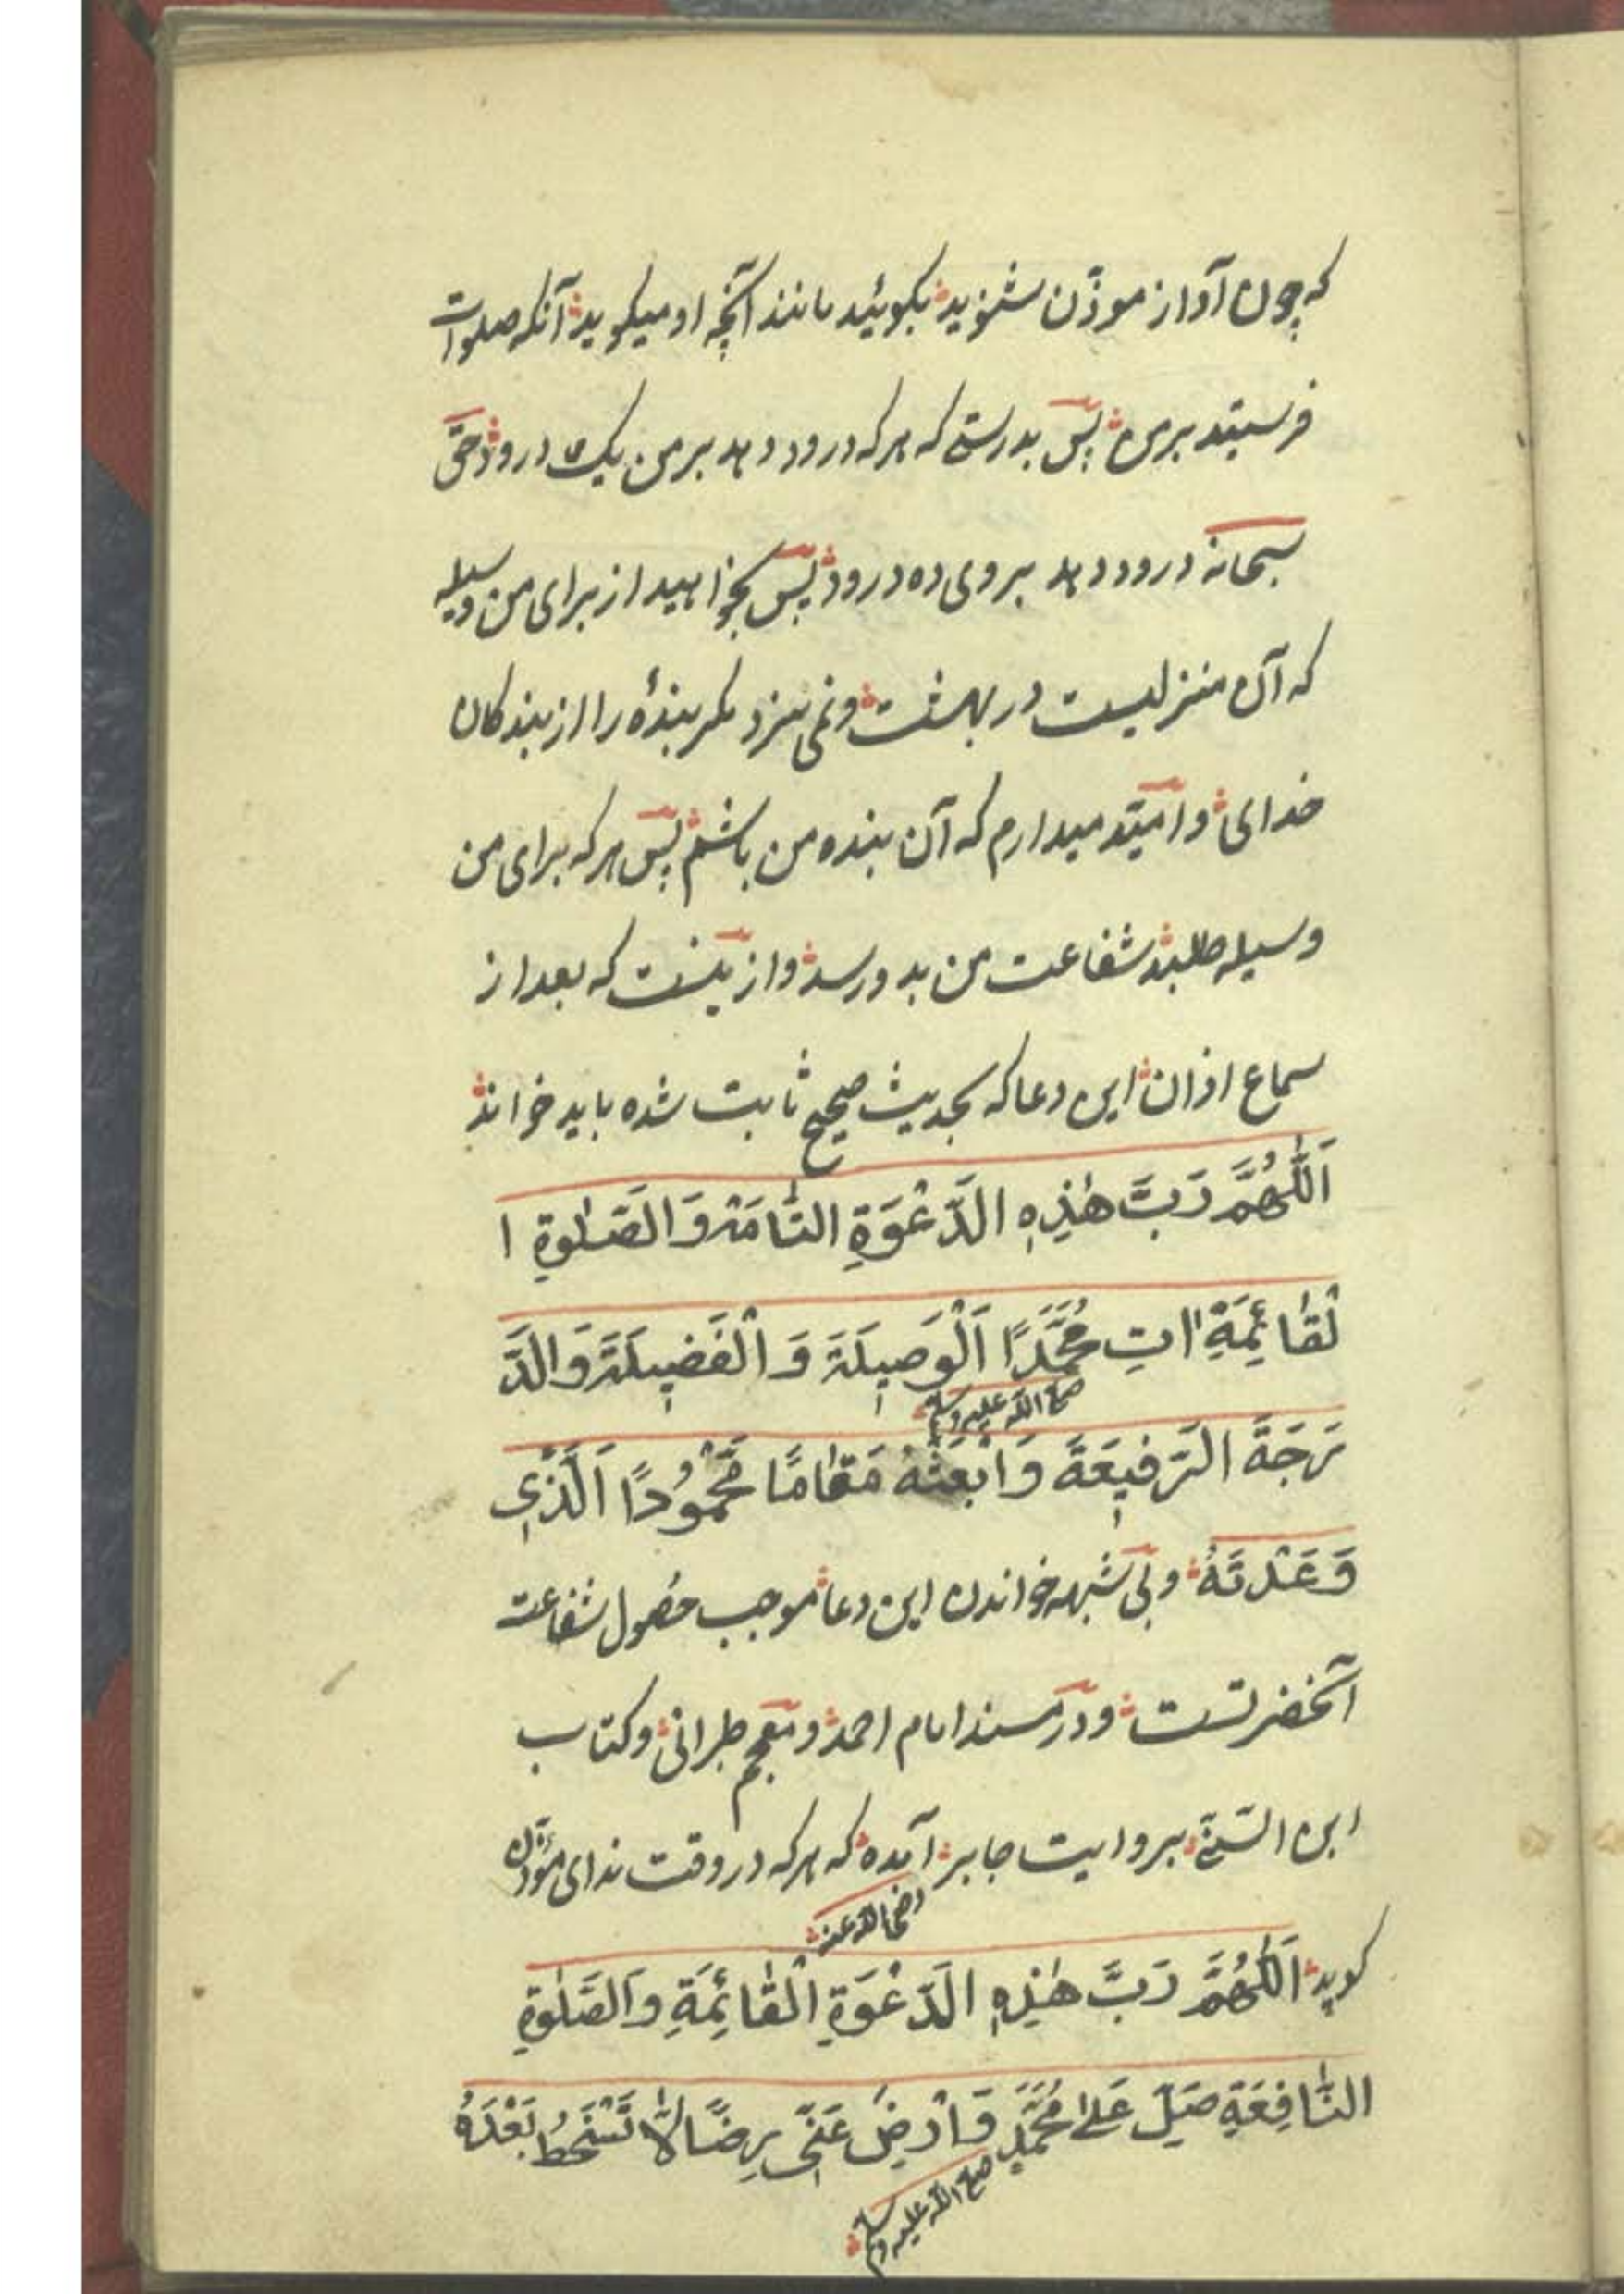 که چون آواز موذّن شنوید بکوئید مانند آنچه او میکوید آنکه صلوات
فرستید بر من پس بدرستے که هرکه درود دهد بر من یک درود حق
سبحانه درود دهد بر وی ده درود پس بخواهید از برای من وسیله
که آن منزلیست در بهشت ونمی سزد مکر بندۀ را از بندکان
خدای و امید میدارم که آن بنده من باشم پس هرکه برای من
وسیله طلبد شفاعت من بدو رسد و ازینست که بعد از
سماع اذان این دعا که بحدیث صحیح ثابت شده باید خواند
اَللّٰهُمَّ رَبَّ هٰذِهِ الدَّعْوَةِ التَّامَّة وَالصَّلٰوةِ ا
لْقَائِمَةِ اٰتِ مُحَمَّدًا اَلْوَصِیلَةَ وَ الْفَضِیلَةَ وَالدَّ
صلے اللّه علیه وسلم
رَجَةَ الرَّفِیعَةَ وَابْعَثْهُ مَقَامًا مَّحْمُوْدًا اَلَّذِی
وَعَدْتَهُ وبی شبهه خواندن این دعا موجب حصول شفاعت
آنحضرتست ودر مسند امام احمد ومعجم طبرانی وکتاب
ابن السّنے بروایت جابر آمده که هرکه در وقت ندای مؤذن
رضی الله عنه
کوید اَللّٰهُمَّ رَبَّ هٰذِهِ الدَّعْوَةِ الْقَائِمَةِ وَالصَّلٰوةِ
النَّافِعَةِ صَلِّ عَلےٰ مُحَمَّدٍ وَارْضَ عَنِّی رِضًا لَّا تَسْخَطُ بَعْدَهُ
صلے اللّه علیه وسلم